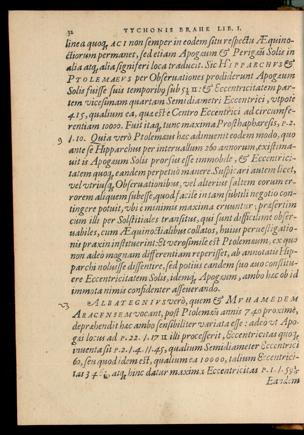 32 TYCHONIS BRAHE LIB. I.
linea quoq, ACI non semper in eodem situ respectu Æquino-
ctiorum permanet, sed etiam Apogæum & Perigæũ Solis in
alia atq, alia signiferi loca traducit. Sic HIPPARCHVS &
PTOLEMÆVS per Observationes prodiderunt Apogæum
Solis fuisse suis temporibꝰ sub 5½ II: & Eccentricitatem par-
tem vicesimam quartam Semidiametri Eccentrici, vtpote
4.15, qualium ea, quæ est è Centro Eccentrici ad circumfe-
rentiam 10000. Fuit itaq, tum maxima Prosthaphæresis, P. 2.
9 1. 10. Quia verò Ptolemæus hac adinvenit eodem modo, quo
ante se Hipparchus per intervallum 260 annorum, existima-
uit is Apogæum Solis prorsus esse immobile, & Eccentrici-
tatem quoq, eandem perpetuò manere. Suspicari autem licet,
vel vtriusq, Observationibus, vel alterius saltem eorum er-
rorem aliquem subesse, quod facile in tam subtili negotio con-
tingere potuit, vbi è minimis maxima eruuntur; præsertim
cum illi per Solstitiales transitus, qui sunt difficilime obser-
uabiles, cum Æquinoctialibus collatos, huius peruestigatio-
nis praxin instituerint: Et verosimile est Ptolemæum, ex quo
non adeo magnam differentiam reperisset, ab annotatis Hip-
parchi noluisse dissentire, sed potius eandem suo æuo constitu-
ere Eccentricitatem Solis, idemq, Apogæum, ambo hæc ob id
immota nimis confidenter asseuerando.
23 ALBATEGNIVS verò, quem & MVHAMEDEM
ARACENSEM vocant, post Ptolemæũ annis 740 proximè,
deprehendit hæc ambo sensibiliter variata esse: adeo vt Apo-
gæi locus ad P. 22. /. 17 II illi processerit, Eccentricitas quoq,
inuenta sit P. 2. /. 4. //. 45, qualium Semidiameter Eccentrici
60, seu quod idem est, qualium ea 10000, talium Eccentrici-
tas 346, atq, hinc datur maxima Eccentricitas P. 1. /. 59½
Eandem